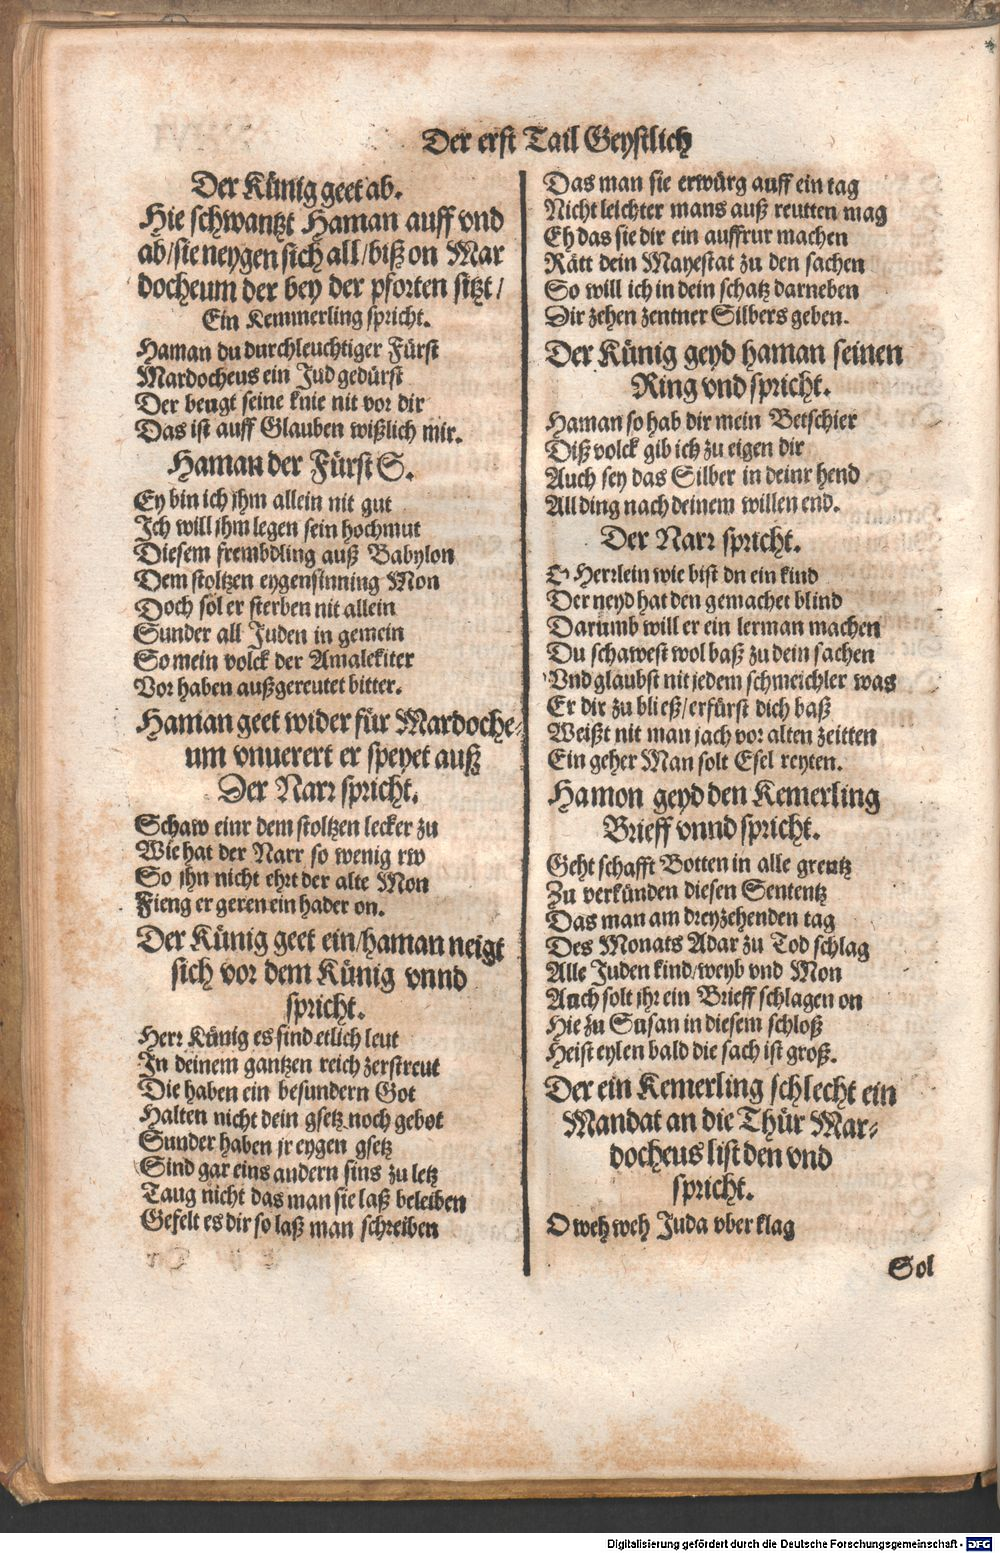 Der erst Tail Geystlich
Der Künig geet ab.
Hie schwantzt Haman auff vnd
ab/sie neygen sich all/biß on Mar
docheum der bey der pforten sitzt/
Ein Kemmerling spricht.
Haman du durchleuchtiger Fürst
Mardocheus ein Jud gedürst
Der beugt seine knie nit vor dir
Das ist auff Glauben wißlich mir.
Haman der Fürst S.
Ey bin ich jhm allein nit gut
Ich will jhm legen sein hochmut
Diesem frembdling auß Babylon
Dem stoltzen eygensinning Mon
Doch sol er sterben nit allein
Sunder all Juden in gemein
So mein volck der Amalekiter
Vor haben außgereutet bitter.
Haman geet wider für Mardoche-
um vnuerert er speyet auß
Der Narr spricht.
Schaw einr dem stoltzen lecker zu
Wie hat der Narr so wenig rw
So jhn nicht ehrt der alte Mon
Fieng er geren ein hader on.
Der Künig geet ein/haman neigt
sich vor dem Künig vnnd
spricht.
Herr Künig es sind etlich leut
In deinem gantzen reich zerstreut
Die haben ein besundern Got
Halten nicht dein gsetz noch gebot
Sunder haben jr eygen gsetz
Sind gar eins andern sins zu letz
Taug nicht das man sie laß beleiben
Gefelt es dir so laß man schreiben
Das man sie erwürg auff ein tag
Nicht leichter mans auß reutten mag
Eh das sie dir ein auffrur machen
Rätt dein Mayestat zu den sachen
So will ich in dein schatz darneben
Dir zehen zentner Silbers geben.
Der Künig geyd haman seinen
Ring vnd spricht.
Haman so hab dir mein Betschier
Diß volck gib ich zu eigen dir
Auch sey das Silber in deinr hend
All ding nach deinem willen end.
Der Narr spricht.
O Herrlein wie bist dn ein kind
Der neyd hat den gemachet blind
Darumb will er ein lerman machen
Du schawest wol baß zu dein sachen
Vnd glaubst nit jedem schmeichler was
Er dir zu bließ/erfürst dich baß
Weißt nit man jach vor alten zeitten
Ein geher Man solt Esel reyten.
Hamon geyd den Kemerling
Brieff vnnd spricht.
Geht schafft Botten in alle grentz
Zu verkünden diesen Sententz
Das man am dreyzehenden tag
Des Monats Adar zu Tod schlag
Alle Juden kind/weyb vnd Mon
Auch solt jhr ein Brieff schlagen on
Hie zu Susan in diesem schloß
Heist eylen bald die sach ist groß.
Der ein Kemerling schlecht ein
Mandat an die Thür Mar-
docheus list den vnd
spricht.
O weh weh Juda vber klag
Sol
Digitalisierung gefördert durch die Deutsche Forschungsgemeinschaft - DFG